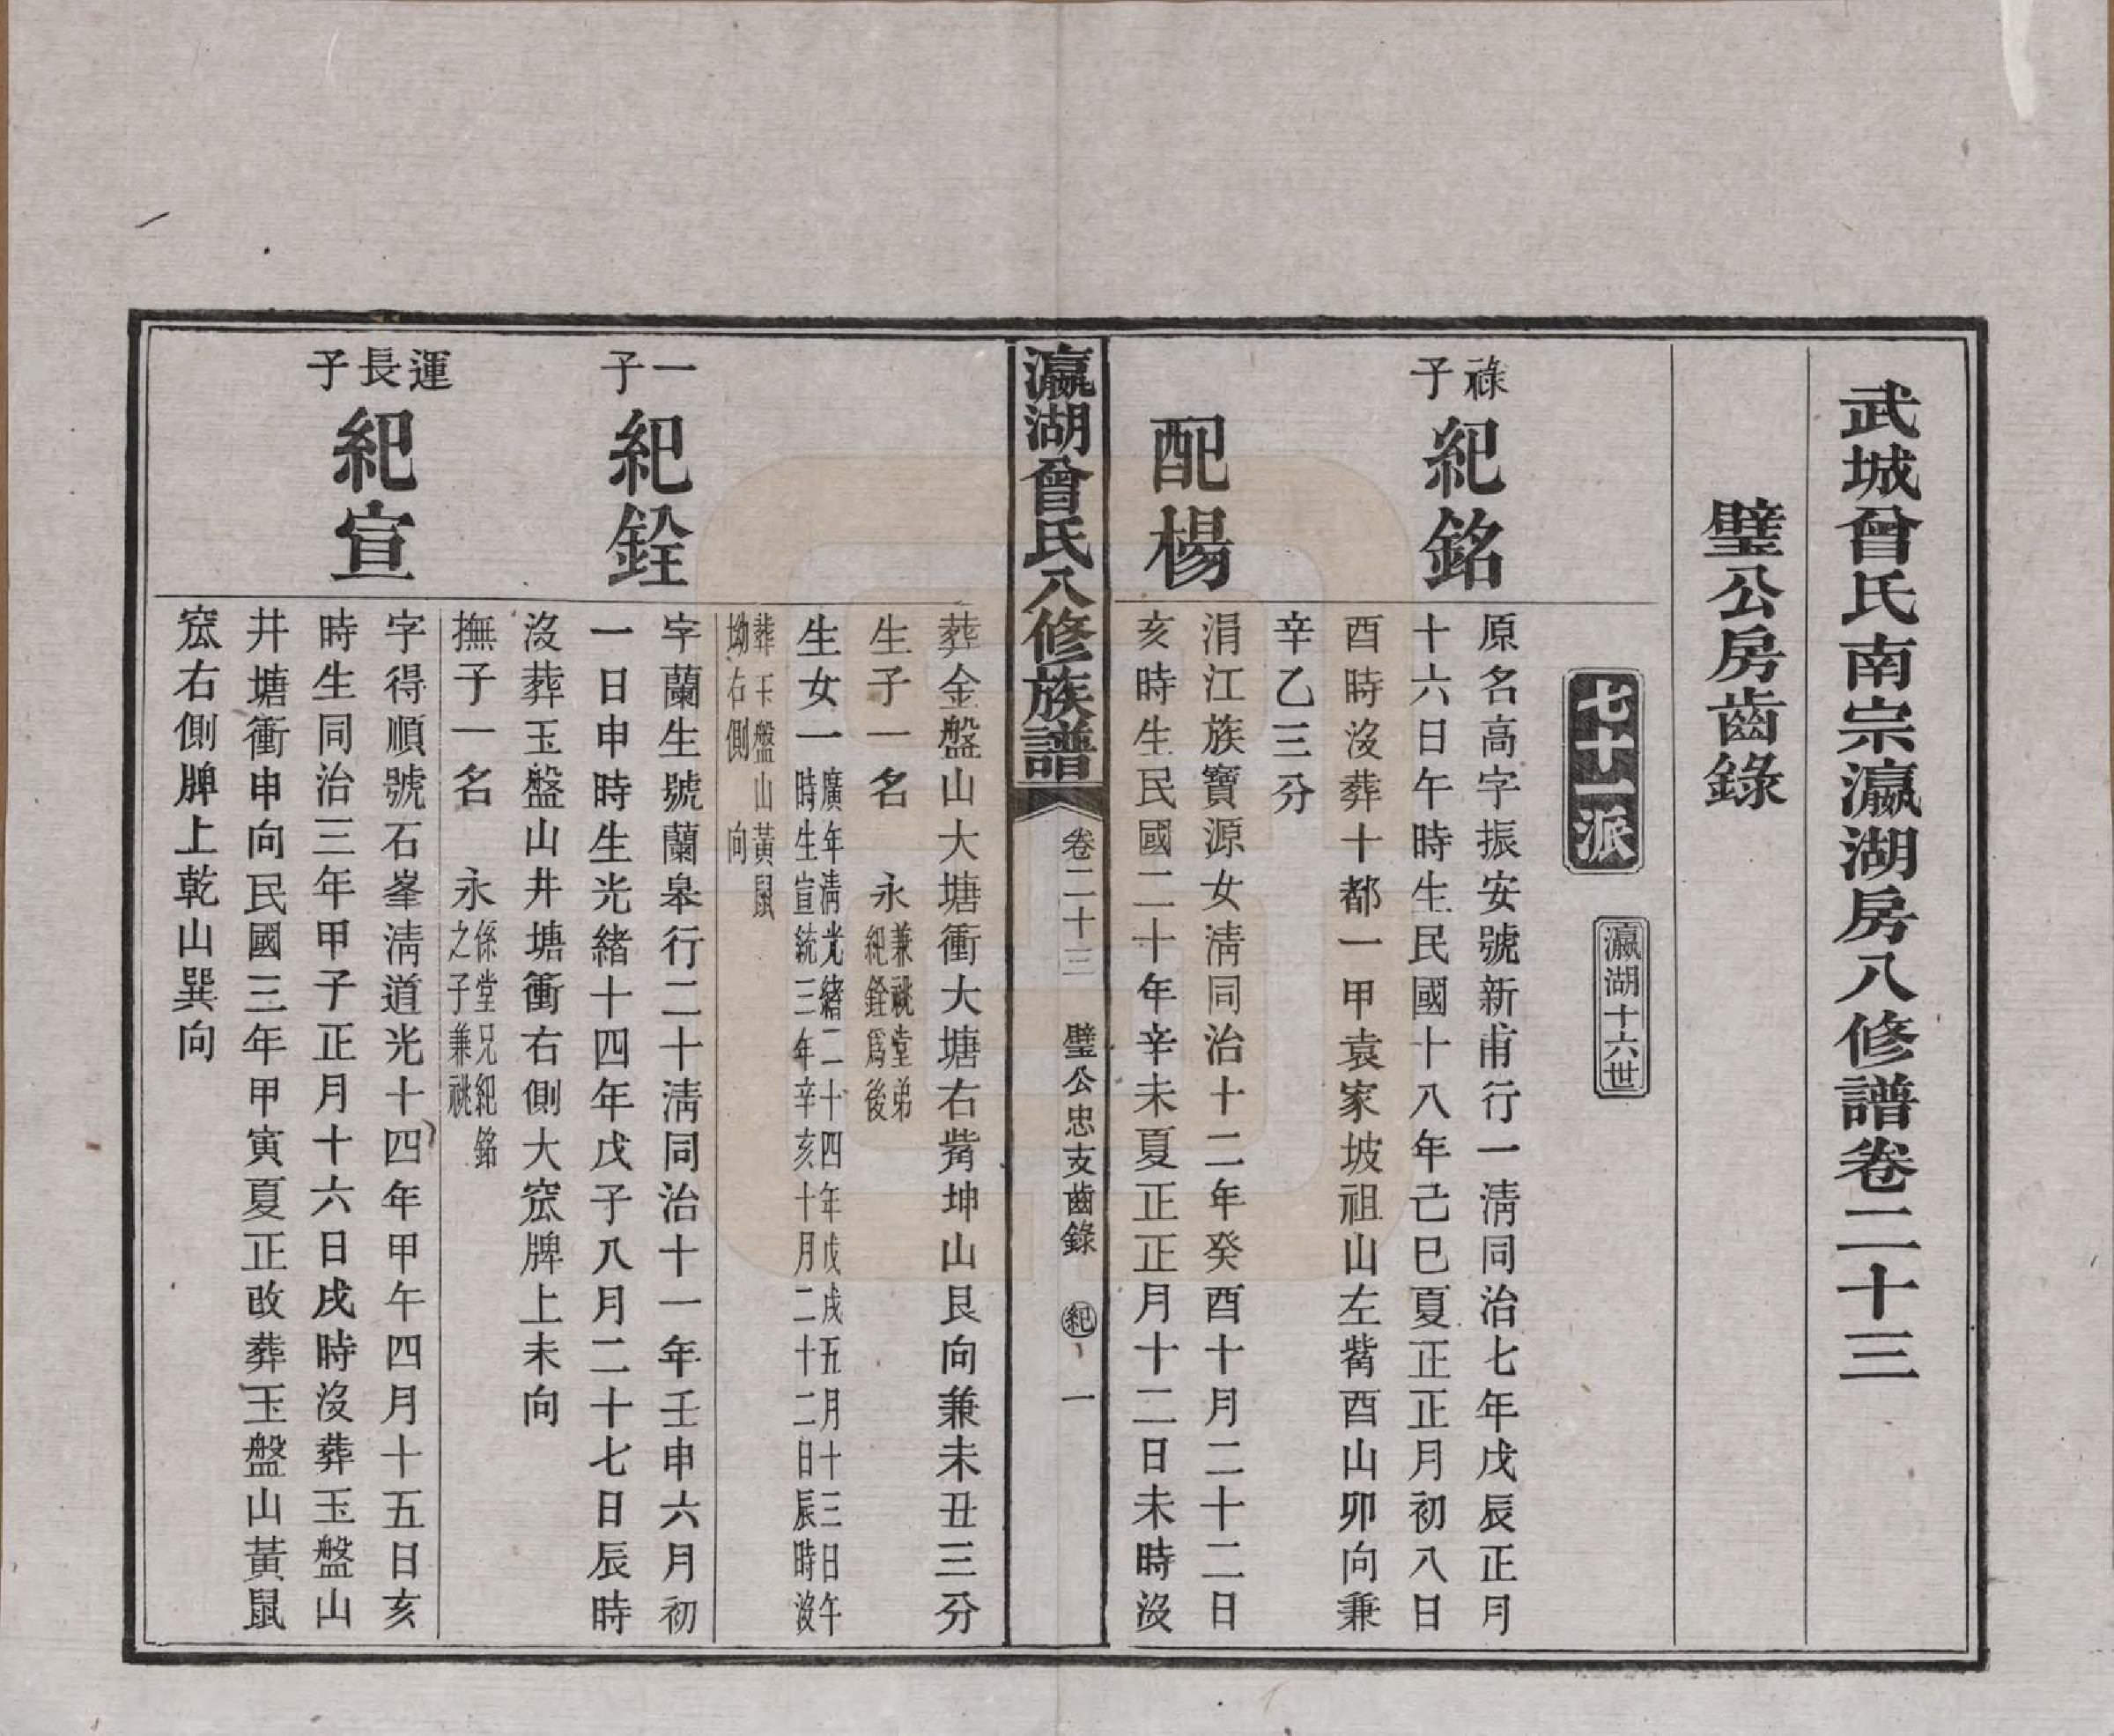 武城曾氏南宗瀛湖房八修譜卷二十三
璧公房齒錄
七十一派
瀛湖十六世
祿子
紀銘
原名高字振安號新甫行一清同治七年戊辰正月
十六日午時生民國十八年己巳夏正正月初八日
酉時沒葬十都一甲袁家坡祖山左觜酉山卯向兼
辛乙三分
配楊
涓江族寶源女清同治十二年癸酉十月二十二日
亥時生民國二十年辛未夏正正月十二日未時沒
瀛湖曾氏八修族譜
卷二十三
璧公忠支齒錄
紀
一
葬金盤山大塘衝大塘右觜坤山艮向兼未丑三分
生子一名
永
兼祧堂弟
紀銓爲後
生女一
廣年清光緒二十四年戊戌五月十三日午
時生宣統三年辛亥十月二十二日辰時沒
葬玉盤山黃鼠
坳右側 向
一子
紀銓
字蘭生號蘭皋行二十清同治十一年壬申六月初
一日申時生光緒十四年戊子八月二十七日辰時
沒葬玉盤山井塘衝右側大窊牌上未向
撫子一名
永
係堂兄紀銘
之子兼祧
運長子
紀宣
字得順號石峯清道光十四年甲午四月十五日亥
時生同治三年甲子正月十六日戌時沒葬玉盤山
井塘衝申向民國三年甲寅夏正改葬玉盤山黃鼠
窊右側牌上乾山巽向